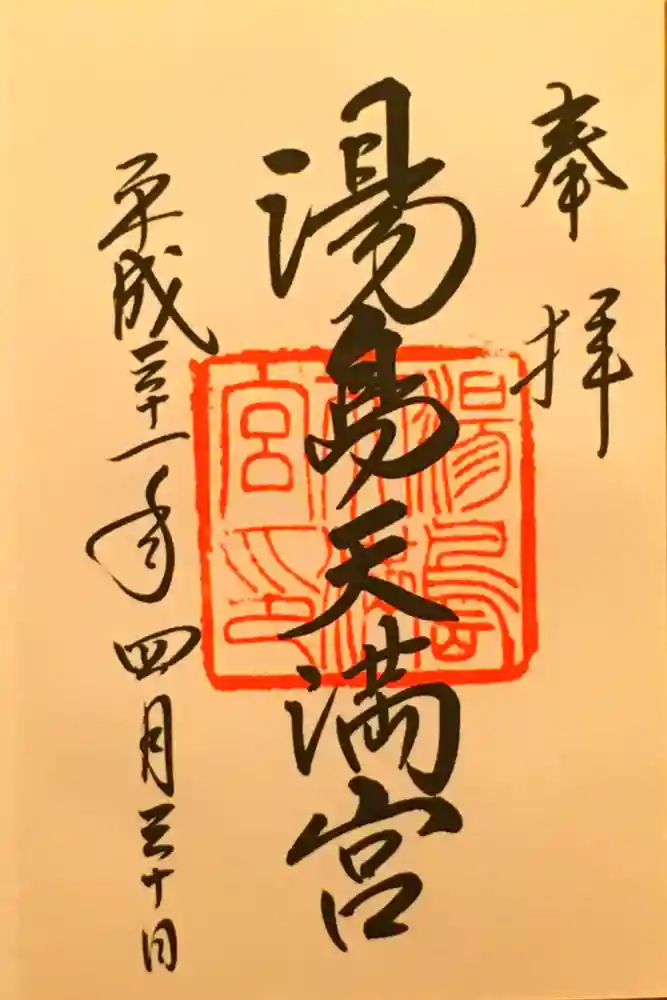 奉拝
湯島天満宮
湯島天満宮印
平成三十一年四月三十日